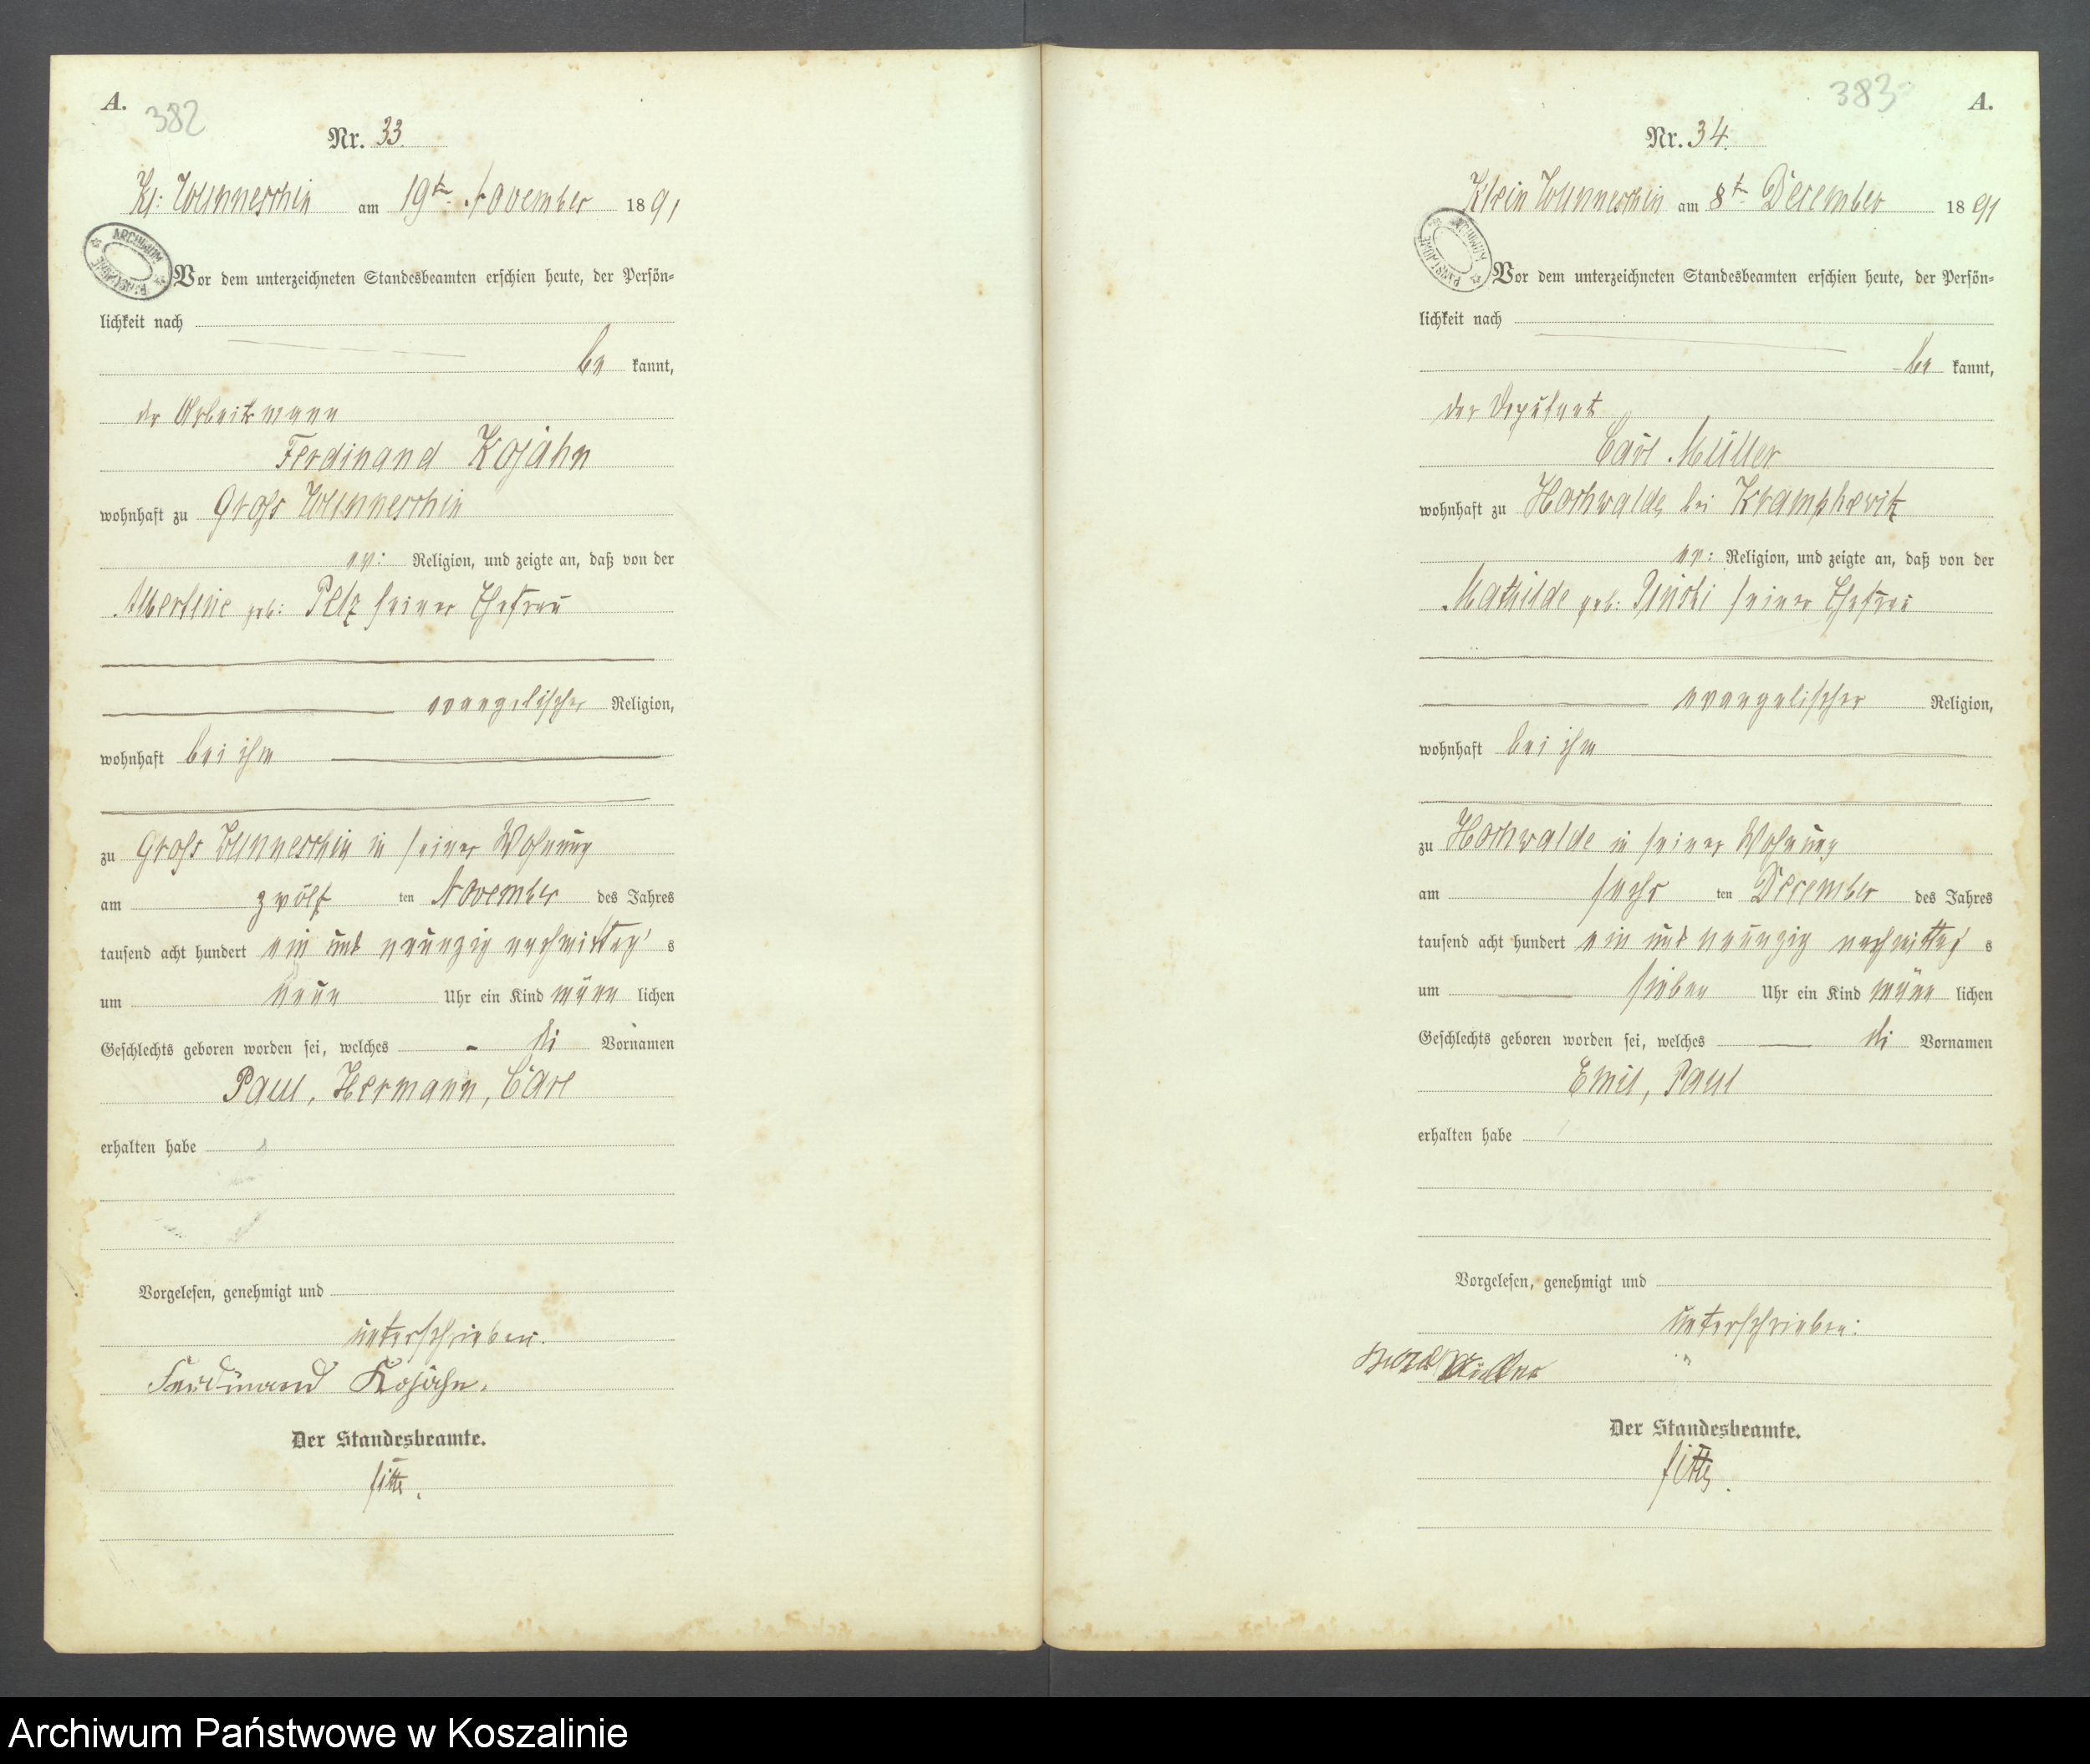 A.
382
Nr. 33.
Kl: Wunneschin am 19t. November 1891
ARCHIWUM PAŃSTWOWE
Vor dem unterzeichneten Standesbeamten erschien heute, der Persön-
lichkeit nach
be kannt,
der Arbeitsmann
Ferdinand Kojahn
wohnhaft zu Groß Wunneschin
ev: Religion, und zeigte an, daß von der
Albertine geb: Pelz seiner Ehefrau
evangelischer Religion,
wohnhaft bei ihm
zu Groß Wunneschin in seiner Wohnung
am zwölf ten November des Jahres
tausend acht hundert ein und neunzig nachmittag's
um neun Uhr ein Kind männ lichen
Geschlechts geboren worden sei, welches die Vornamen
Paul, Hermann, Carl
erhalten habe
Vorgelesen, genehmigt und
unterschrieben.
Ferdinand Kojahn.
Der Standesbeamte.
383
A.
Nr. 34.
Klein Wunneschin am 8t. December 1891
ARCHIWUM PAŃSTWOWE
Vor dem unterzeichneten Standesbeamten erschien heute, der Persön-
lichkeit nach
be kannt,
der Deputant
Carl Müller
wohnhaft zu Hochwalde bei Krampkewitz
ev: Religion, und zeigte an, daß von der
Mathilde geb: seiner Ehefrau
evangelischer Religion,
wohnhaft bei ihm
zu Hochwalde in seiner Wohnung
am sechs ten December des Jahres
tausend acht hundert ein und neunzig nachmittag's
um sieben Uhr ein Kind männ lichen
Geschlechts geboren worden sei, welches die Vornamen
Emil, Paul
erhalten habe
Vorgelesen, genehmigt und
unterschrieben:
Müller
Der Standesbeamte.
Archiwum Państwowe w Koszalinie